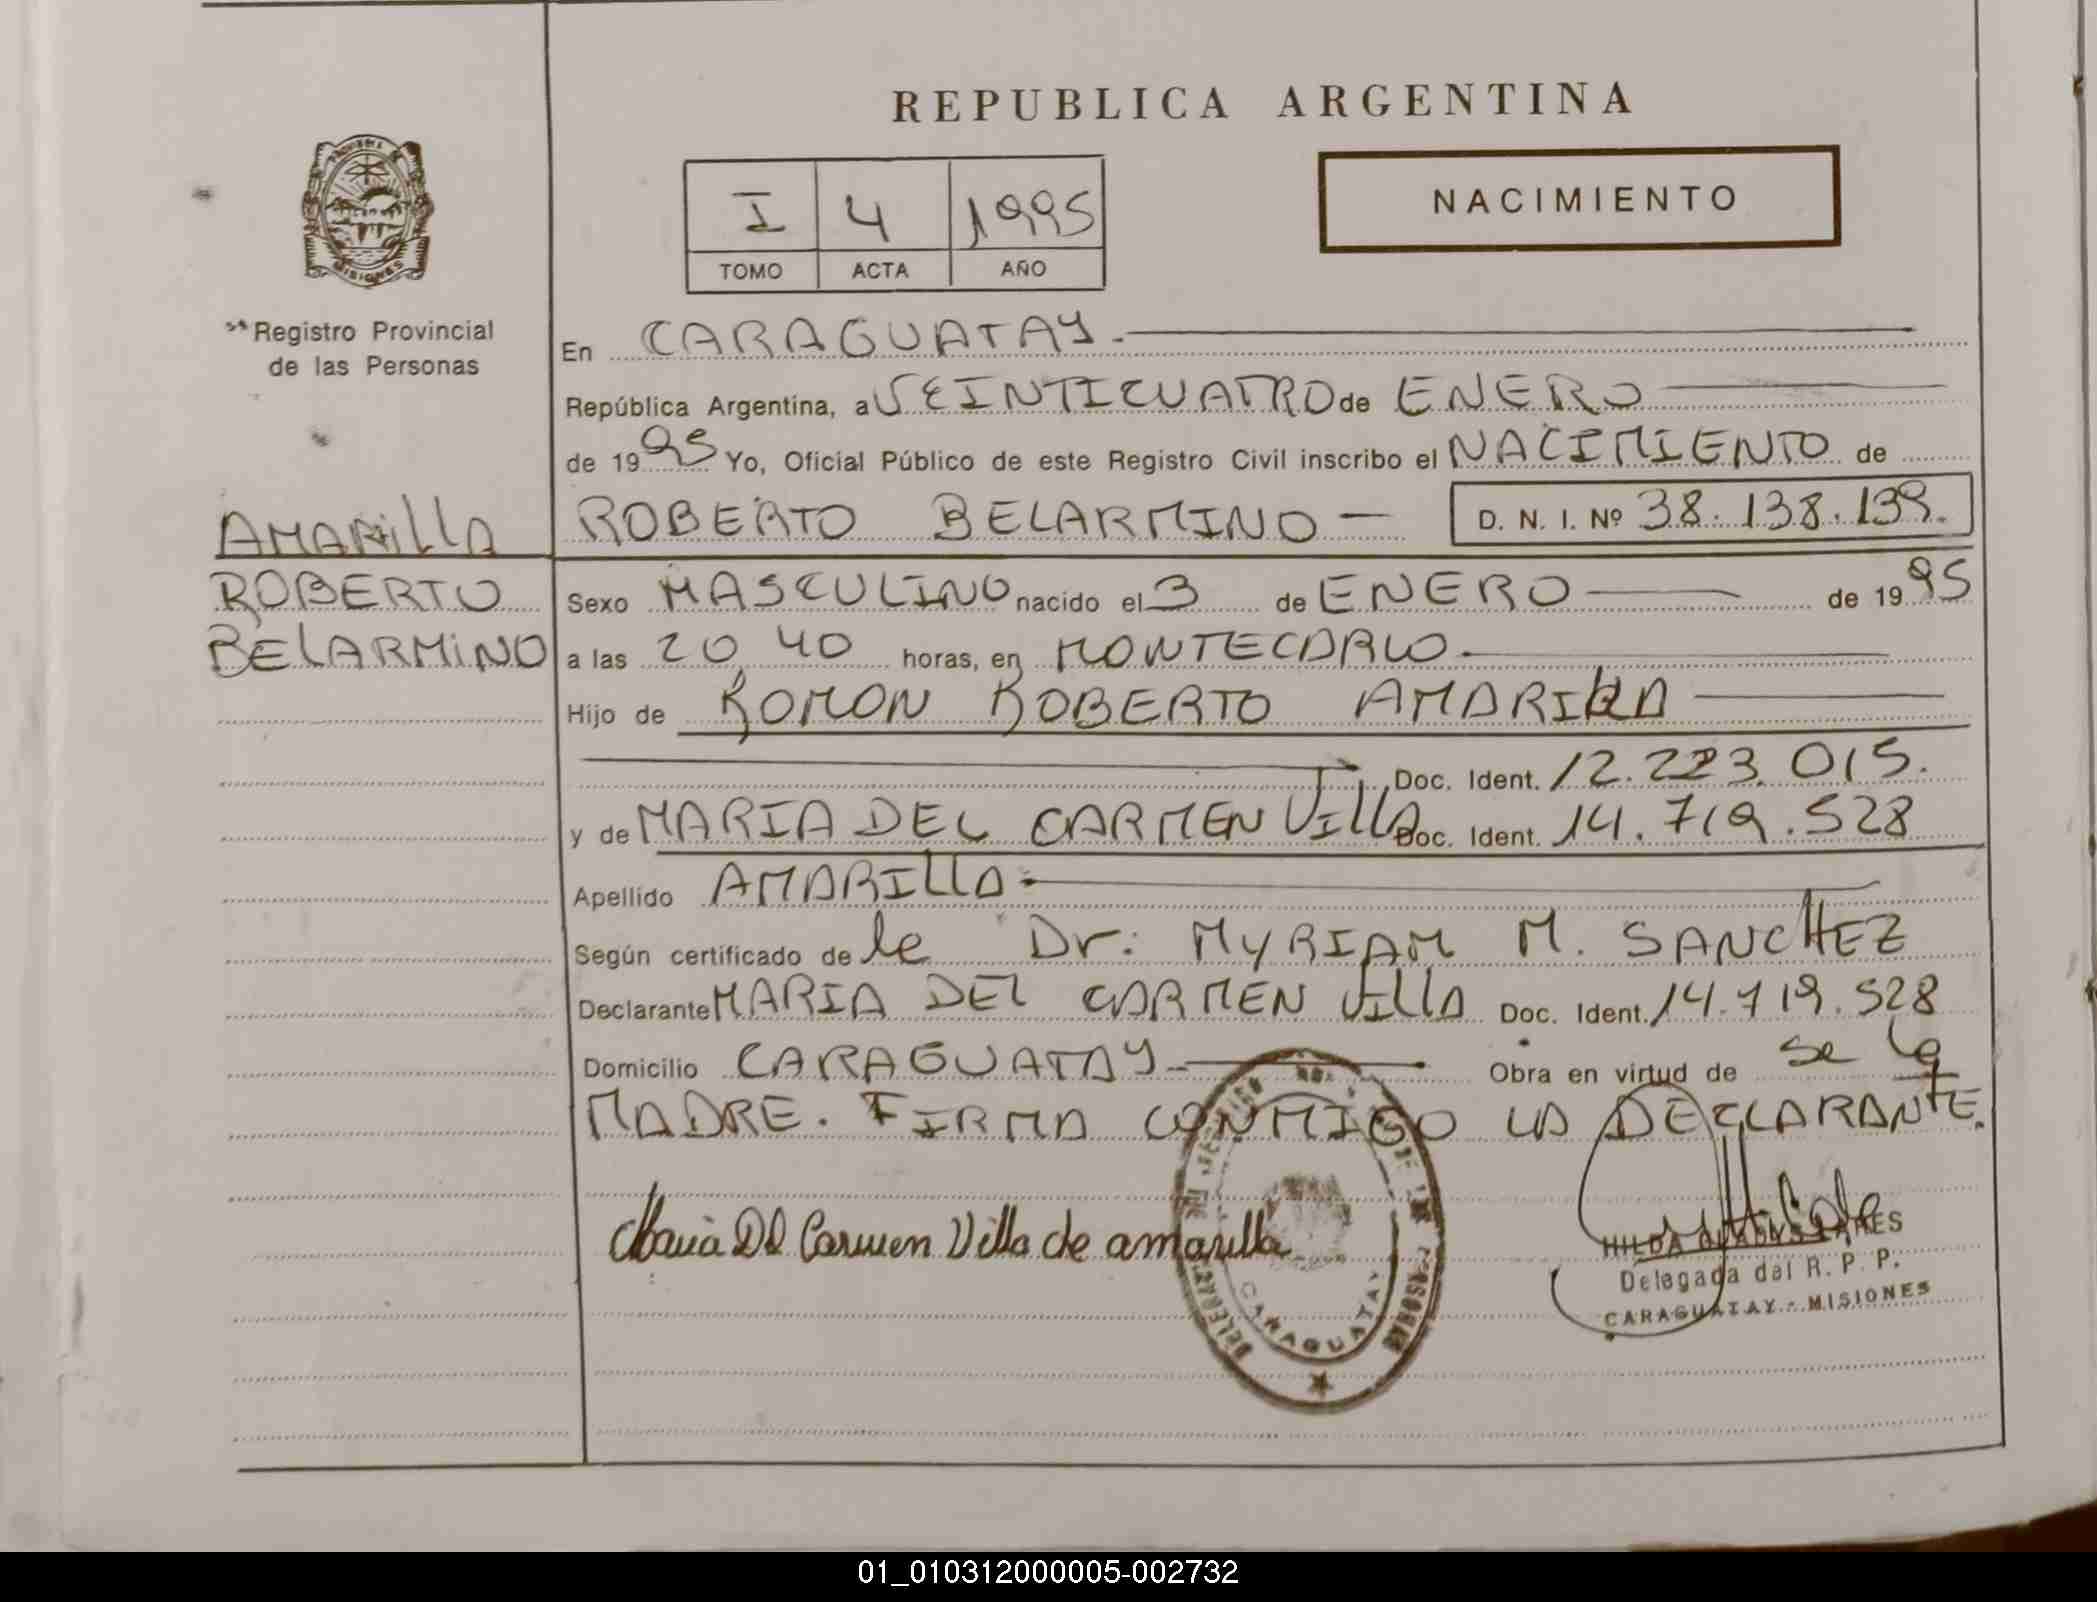 REPUBLICA ARGENTINA
NACIMIENTO
I 4 1995
TOMO ACTA AÑO
PROVINCIA DE
MISIONES
Registro Provincial
de las Personas
En CARAGUATAY.
República Argentina, a VEINTICUATRO de ENERO
de 1995 Yo, Oficial Público de este Registro Civil inscribo el NACIMIENTO de
AMARILLA
ROBERTO BELARMINO D. N. I. Nº 38.138.139.
ROBERTO
BELARMINO
Sexo MASCULINO nacido el 3 de ENERO de 1995
a las 20 40 horas, en MONTECARLO.
Hijo de ROMON ROBERTO AMARILLA
Doc. Ident. 12.223.015.
y de MARIA DEL CARMEN VILLA Doc. Ident. 14.719.528
Apellido AMARILLA.
Según certificado de le Dr: MYRIAM M. SANCHEZ
Declarante MARIA DEL CARMEN VILLA Doc. Ident. 14.719.528
Domicilio CARAGUATAY Obra en virtud de se la
MADRE. FIRMA CONMIGO LA DECLARANTE.
Maria Del Carmen Villa de amarilla
CARAGUATAY
HILDA
Delegada del R. P. P.
CARAGUATAY - MISIONES
01_010312000005-002732